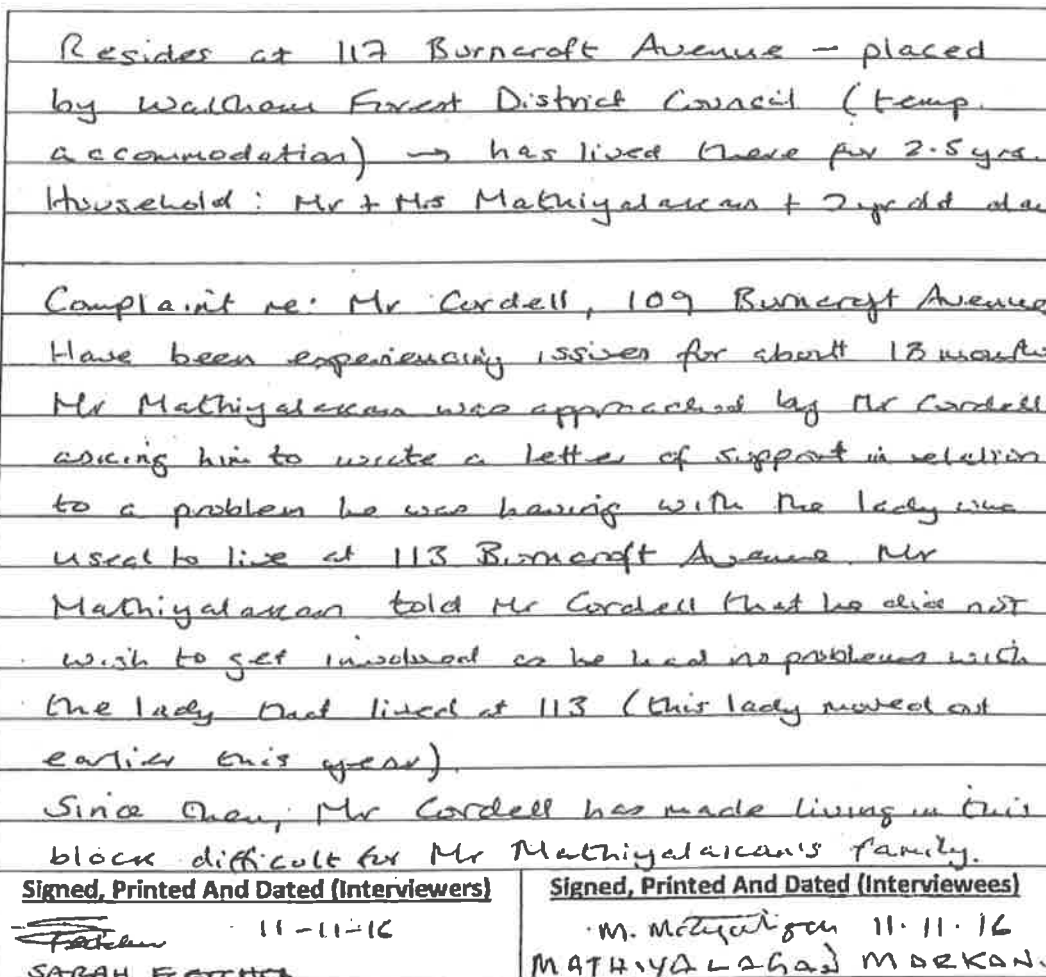 Resides at 117 Burncroft Avenue - placed
by Waltham Forest District Council (temp.
accommodation) → has lived there for 2.5 yrs.
Household: Mr + Mrs Mathiyalakan + 2 yr old
Complaint re: Mr Cordell, 109 Burncroft Avenue
Have been experiencing issues for about 18 months
Mr Mathiyalakan was approached by Mr Cordell
asking him to write a letter of support in relation
to a problem he was having with the lady who
used to live at 113 Burncroft Avenue. Mr
Mathiyalakan told Mr Cordell that he did not
wish to get involved as he had no problems with
the lady that lived at 113 (this lady moved out
earlier this year).
Since then, Mr Cordell has made living in this
block difficult for Mr Mathiyalakan's family.
Signed, Printed And Dated (Interviewers)
Signed, Printed And Dated (Interviewees)
11-11-16
11.11.16
SARAH
MATHIYALAGAN MARKAN.